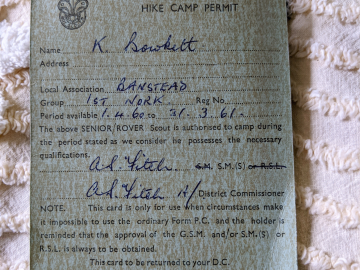 HIKE CAMP PERMIT
Name K Bowkett
Address
Local Association BANSTEAD
Group 1ST NORK Reg No.
Period available 1.4.60 to 31.3.61.
The above SENIOR/ROVER Scout is authorised to camp during
the period stated as we consider he possesses the necessary
qualifications.
A.S. Fitch. G.M. S.M.(S) or R.S.L.
A.S. Fitch A/ District Commissioner
NOTE. This card is only for use when circumstances make
it impossible to use the ordinary Form P.C. and the holder is
reminded that the approval of the G.S.M. and/or S.M.(S) or
R.S.L. is always to be obtained.
This card to be returned to your D.C.